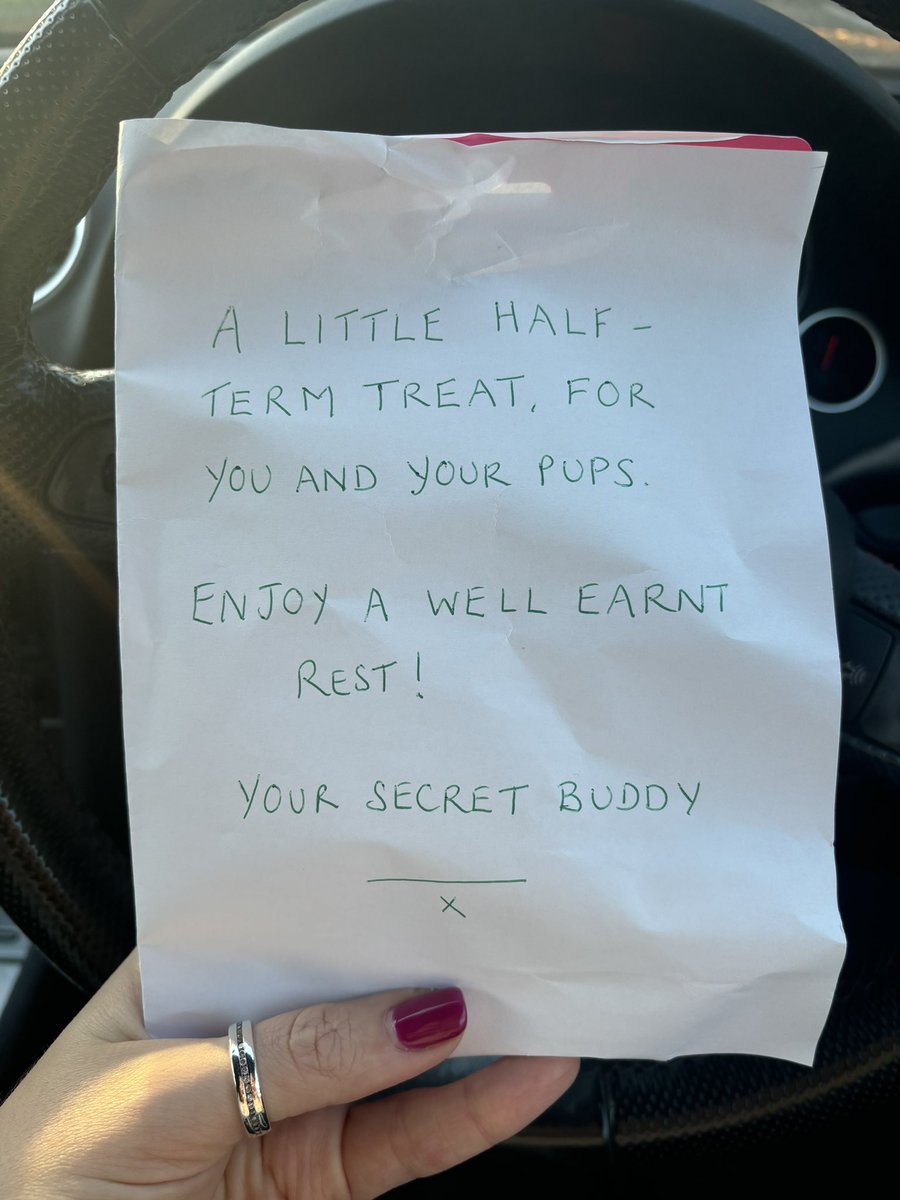 A LITTLE HALF-
TERM TREAT, FOR
YOU AND YOUR PUPS.
ENJOY A WELL EARNT
REST!
YOUR SECRET BUDDY
X